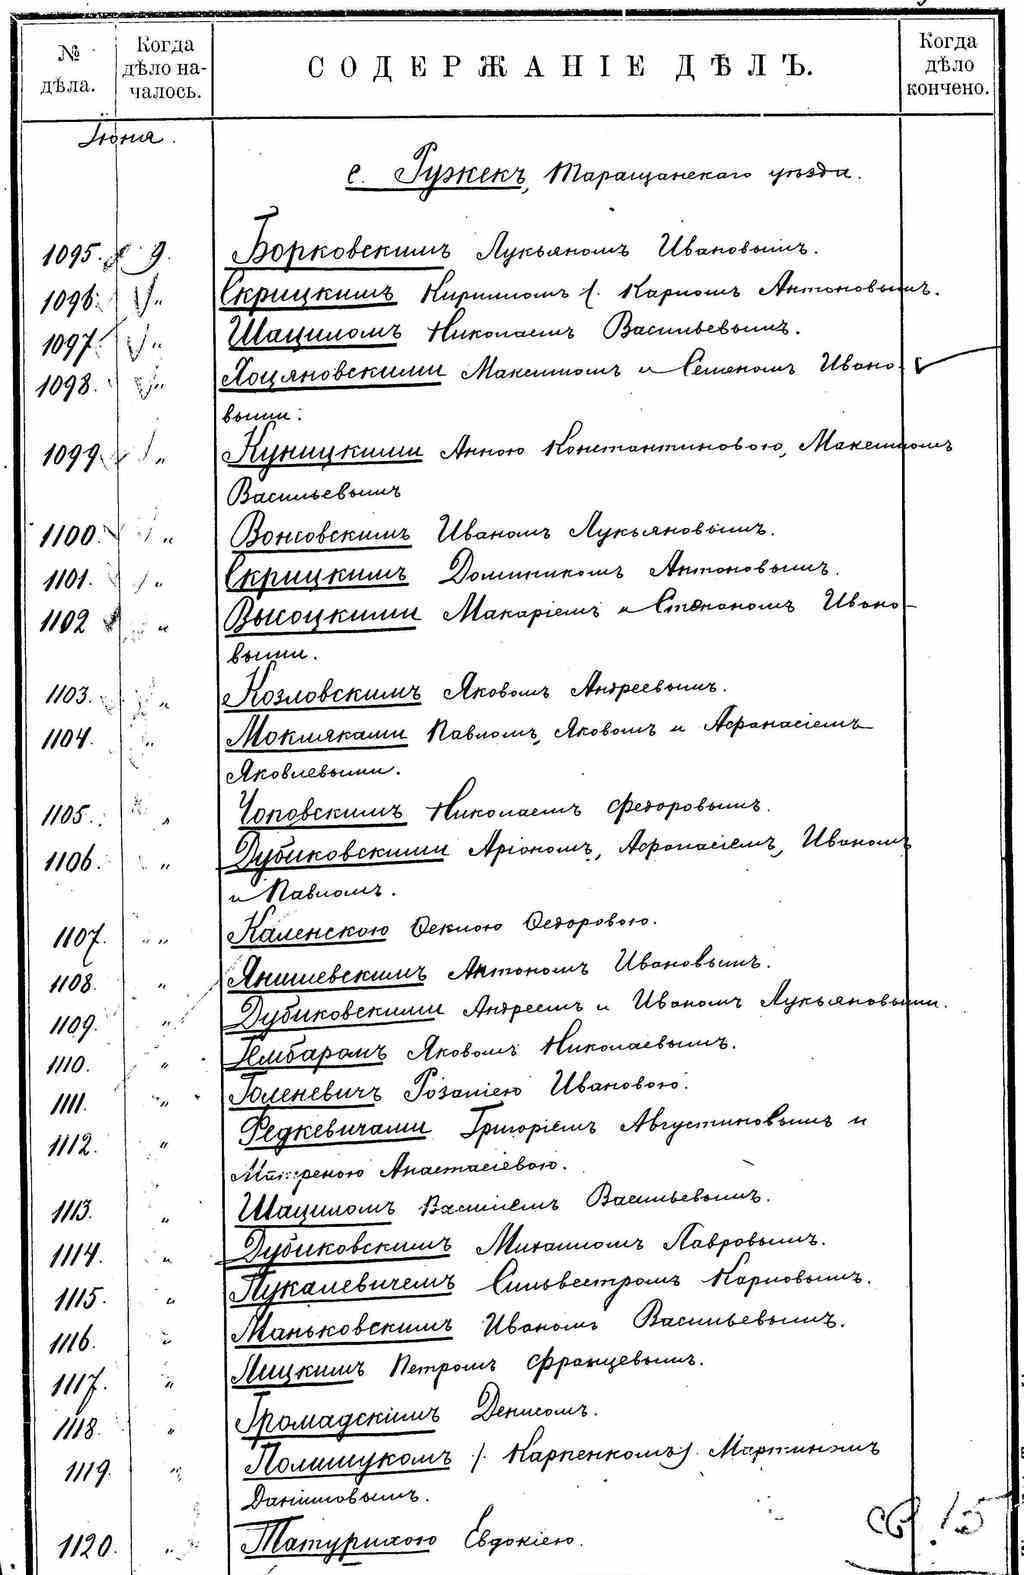 № дѣла.
Когда дѣло началось.
СОДЕРЖАНІЕ ДѢЛЪ.
Когда дѣло кончено.
Іюня.
с. Ружекъ, Таращанскаго уѣзда.
1095. 9. Борковскимъ Лукьяномъ Ивановымъ.
1096. " Скрицкимъ Кирилломъ Карпомъ Антоновымъ.
1097. " Шациломъ Николаемъ Васильевымъ.
1098. " Яоцяновскими Максимомъ и Семеномъ Ивано-
выми.
1099. " Куницкими Анною Константиновою, Максимомъ
Васильевымъ
1100. " Вонсовскимъ Иваномъ Лукьяновымъ.
1101. " Скрицкимъ Доминикомъ Антоновымъ.
1102 " Высоцкими Макаріемъ и Степаномъ Ивано-
выми.
1103. " Козловскимъ Яковомъ Андреевымъ.
1104. " Мокляками Павломъ, Яковомъ и Афанасіемъ
Яковлевыми.
1105. " Чоповскимъ Николаемъ Федоровымъ.
1106. " Дубиковскими Аріономъ, Афонасіемъ, Иваномъ
и Павломъ.
1107. " Каленскою Феклою Федоровою.
1108. " Янишевскимъ Антономъ Ивановымъ.
1109. " Дубиковскими Андреемъ и Иваномъ Лукьяновыми.
1110. " Гембаромъ Яковомъ Николаевымъ.
1111. " Голеневичъ Розаліею Ивановою.
1112. " Федкевичами Григоріемъ Августиновымъ и
Матреною Анастасіевою.
1113. " Шациломъ Василіемъ Васильевымъ.
1114. " Дубиковскимъ Михаиломъ Лавровымъ.
1115. " Лукалевичемъ Сильвестромъ Карповымъ.
1116. " Маньковскимъ Иваномъ Васильевымъ.
1117. " Лицкимъ Петромъ Францевымъ.
1118. " Громадскимъ Денисомъ.
1119. " Полищукомъ /. Карпенкомъ/. Мартиномъ
Даниловымъ.
1120. " Татурихою Евдокіею.
15